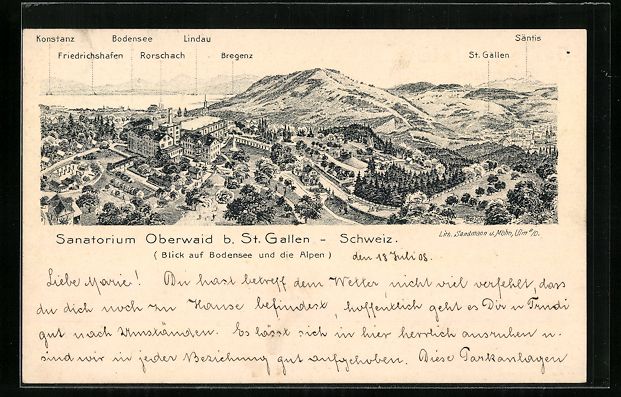 Konstanz Bodensee Lindau Säntis
Friedrichshafen Rorschach Bregenz St. Gallen
Lith. Sandmann u. Mohn, Ulm a/D.
Sanatorium Oberwaid b. St. Gallen - Schweiz.
(Blick auf Bodensee und die Alpen) den 18 Juli 08.
Liebe Marie! Du hast betreff dem Wetter, nicht viel verfehlt, dass
du dich noch zu Hause befindest, hoffentlich geht es Dir u Trudi
gut nach Umständen. Es lässt sich in hier herrlich ausruhen u.
sind wir in jeder Beziehung gut aufgehoben. Diese Parkanlagen